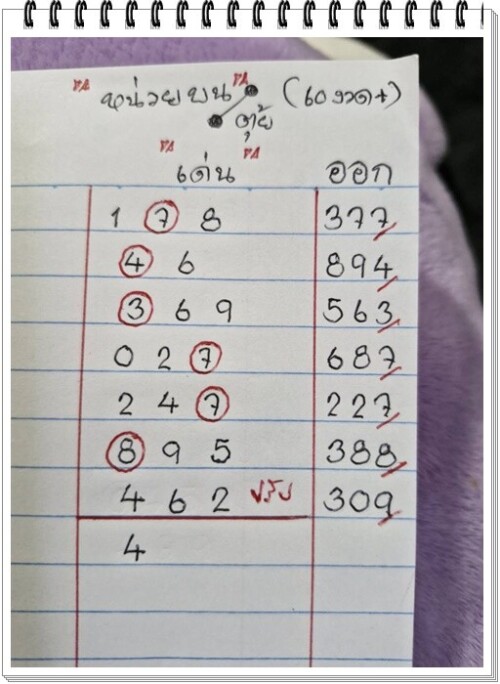 หน่วยบน ตุ้ย (60 งวด+)
เด่น ออก
1 7 8 377
4 6 894
3 6 9 563
0 2 7 687
2 4 7 227
8 9 5 388
4 6 2 309
4